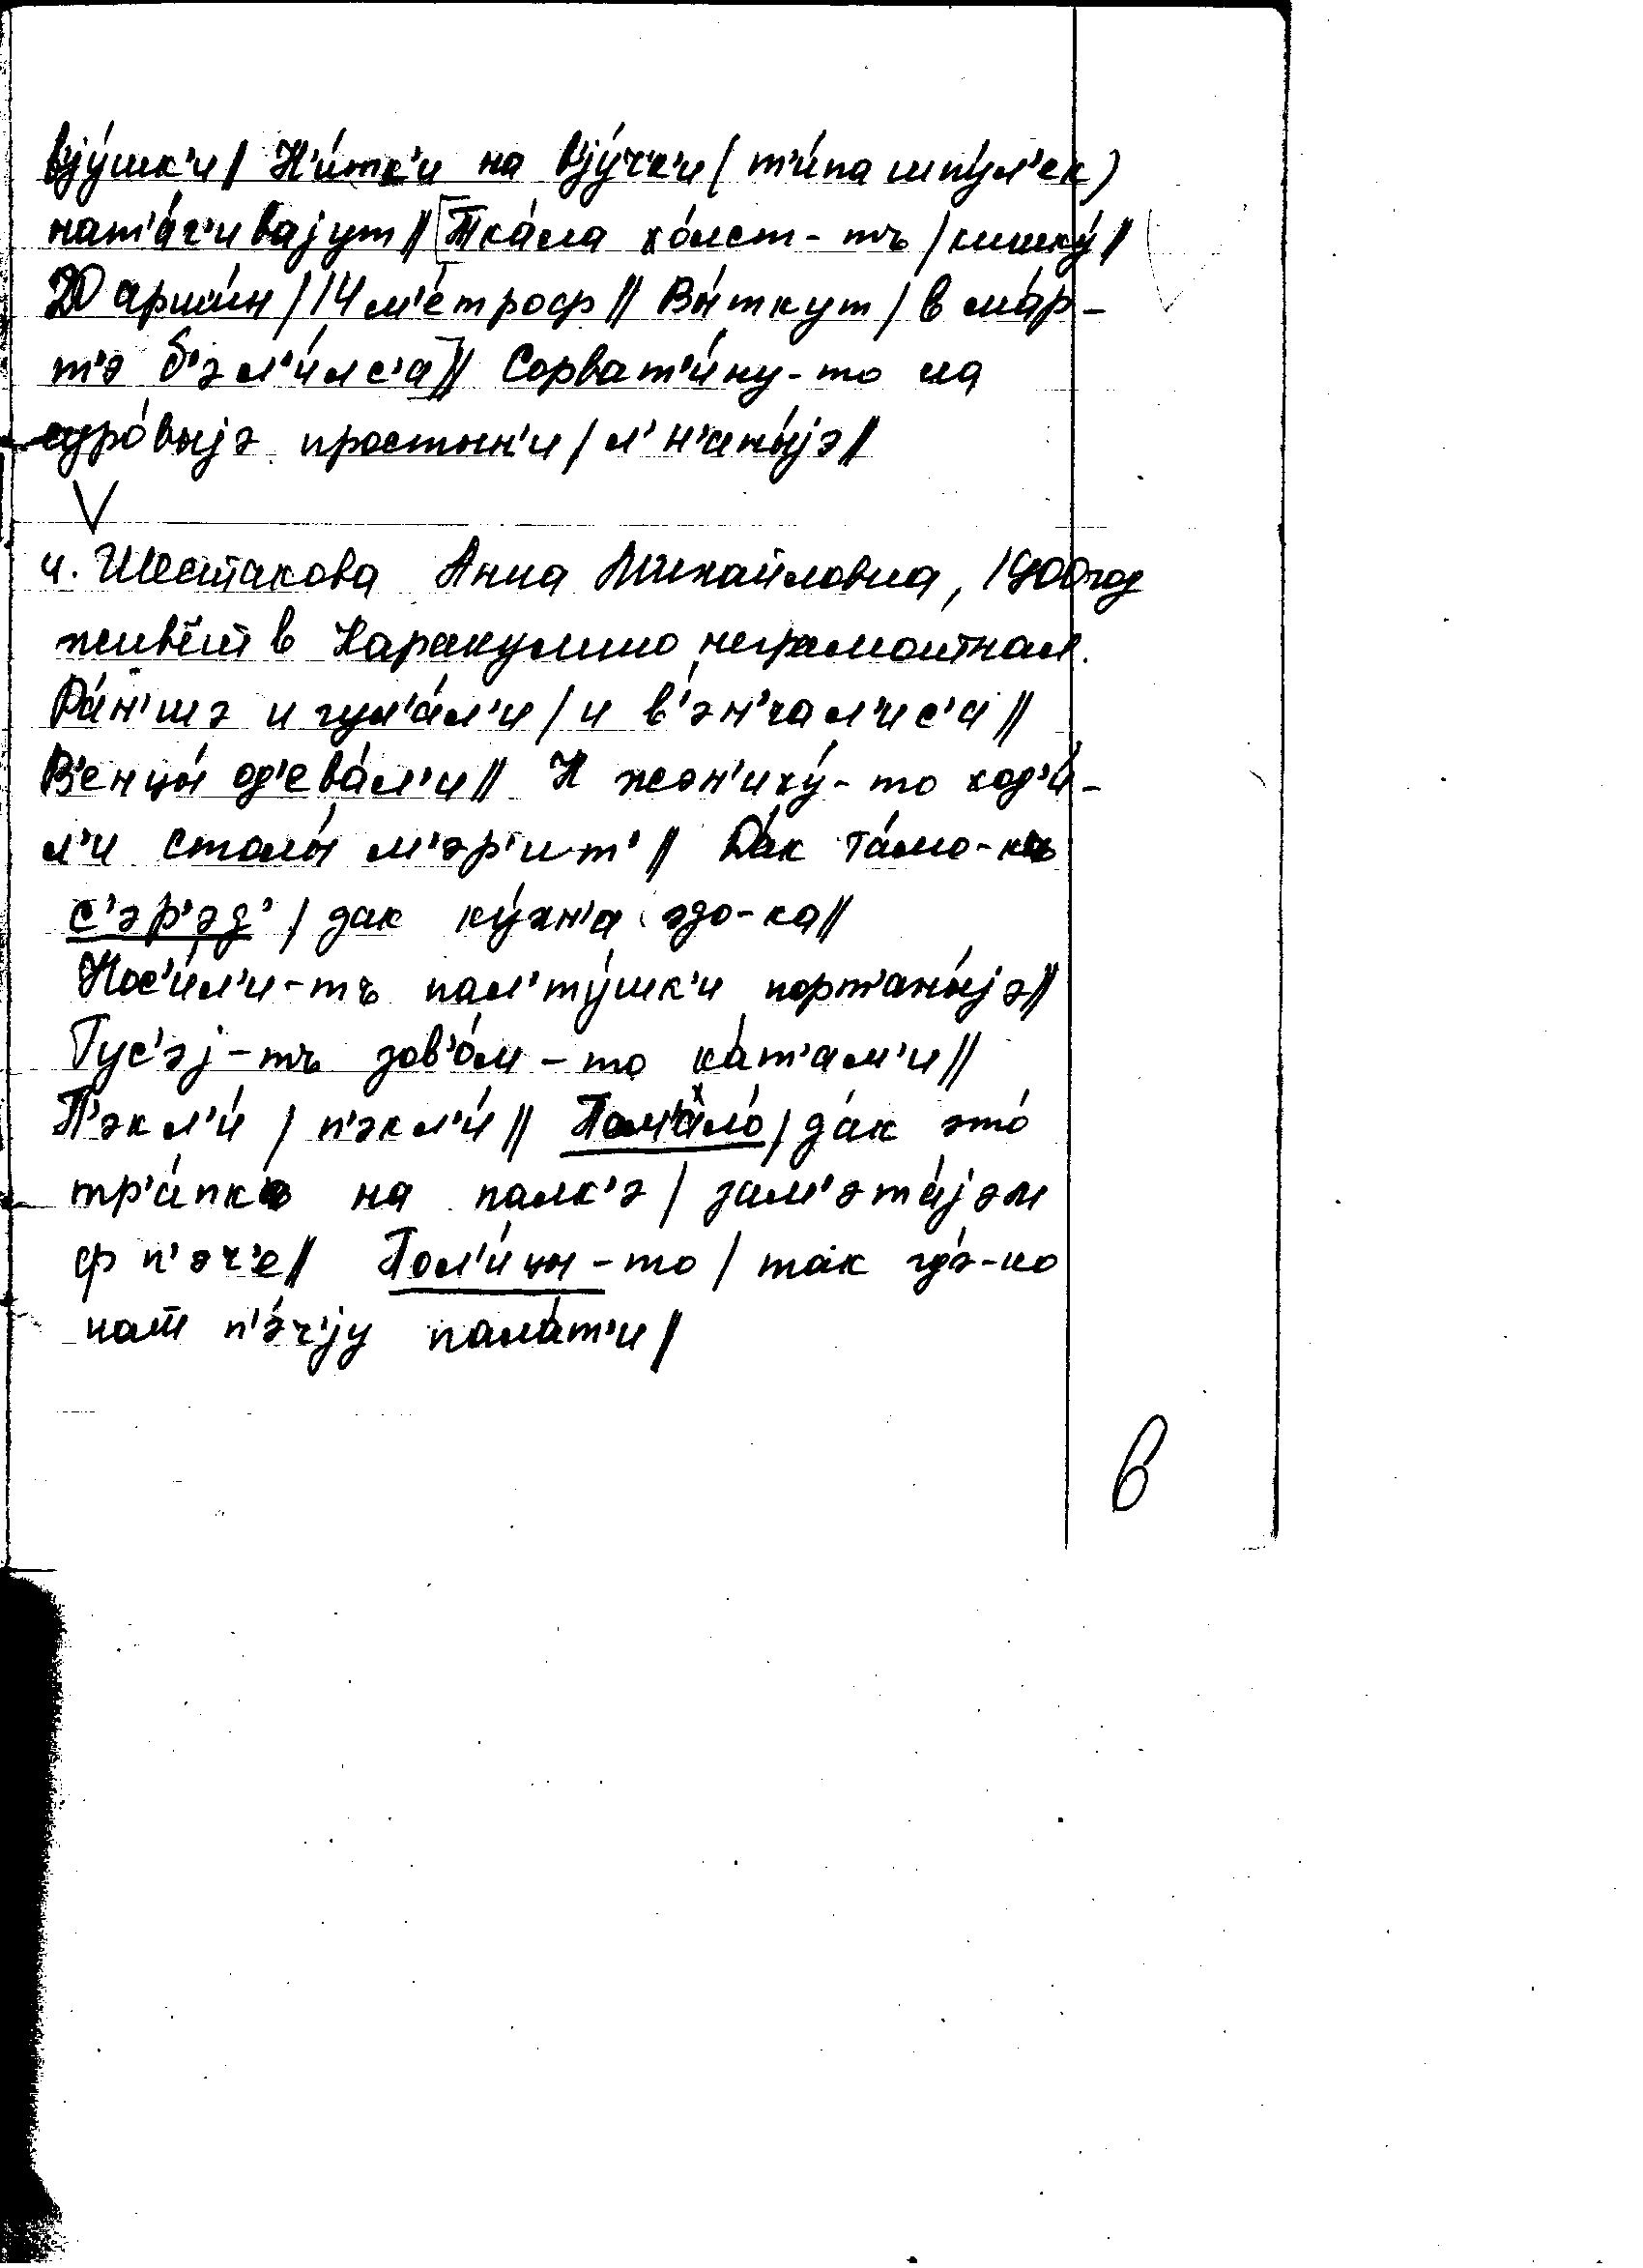 вjу́шк'и/ Н'и́тк'и на вjу́чк'и (т'и́па шпу́л'ек)
нат'а́г'ивajут// [Тка́ла хо́лст-тъ /кишку́//
20 арши́н / 14 м'е́троф // Вы́ткут / в ма́р-
т'э б'эл'и́лс'а]// Сорват'и́ну-то на
суро́выjэ простын'и / л'н'аны́jэ//
V
и. Шестакова Анна Михайловна, 1900 год
живёт в Каракулино, неграмотная.
Ра́н'шэ и гул'а́л'и / и в'эн'чал'ис'а //
В'енцы́ од'ева́л'и // К жэн'иху́-то ход'и́-
л'и столы́ м'эр'ит' // Да́к та́мо-къ
с'эр'эд' / дак ку́хн'а эдо-ка//
Нос'и́л'и-тъ пал'ту́шк'и порт'аны́jэ//
Гус'эj-тъ зов'о́м-то ка́т'ам'и //
П'экл'и́ / п'экл'и́ // Пом'ало́ / да́к это́
тр'а́пкъ на палк'э / зам'эта́jэм
ф п'эч'е// Пол'и́цы-то / так гдэ́-ко
нат п'э́ч'jу пала́т'и/
6